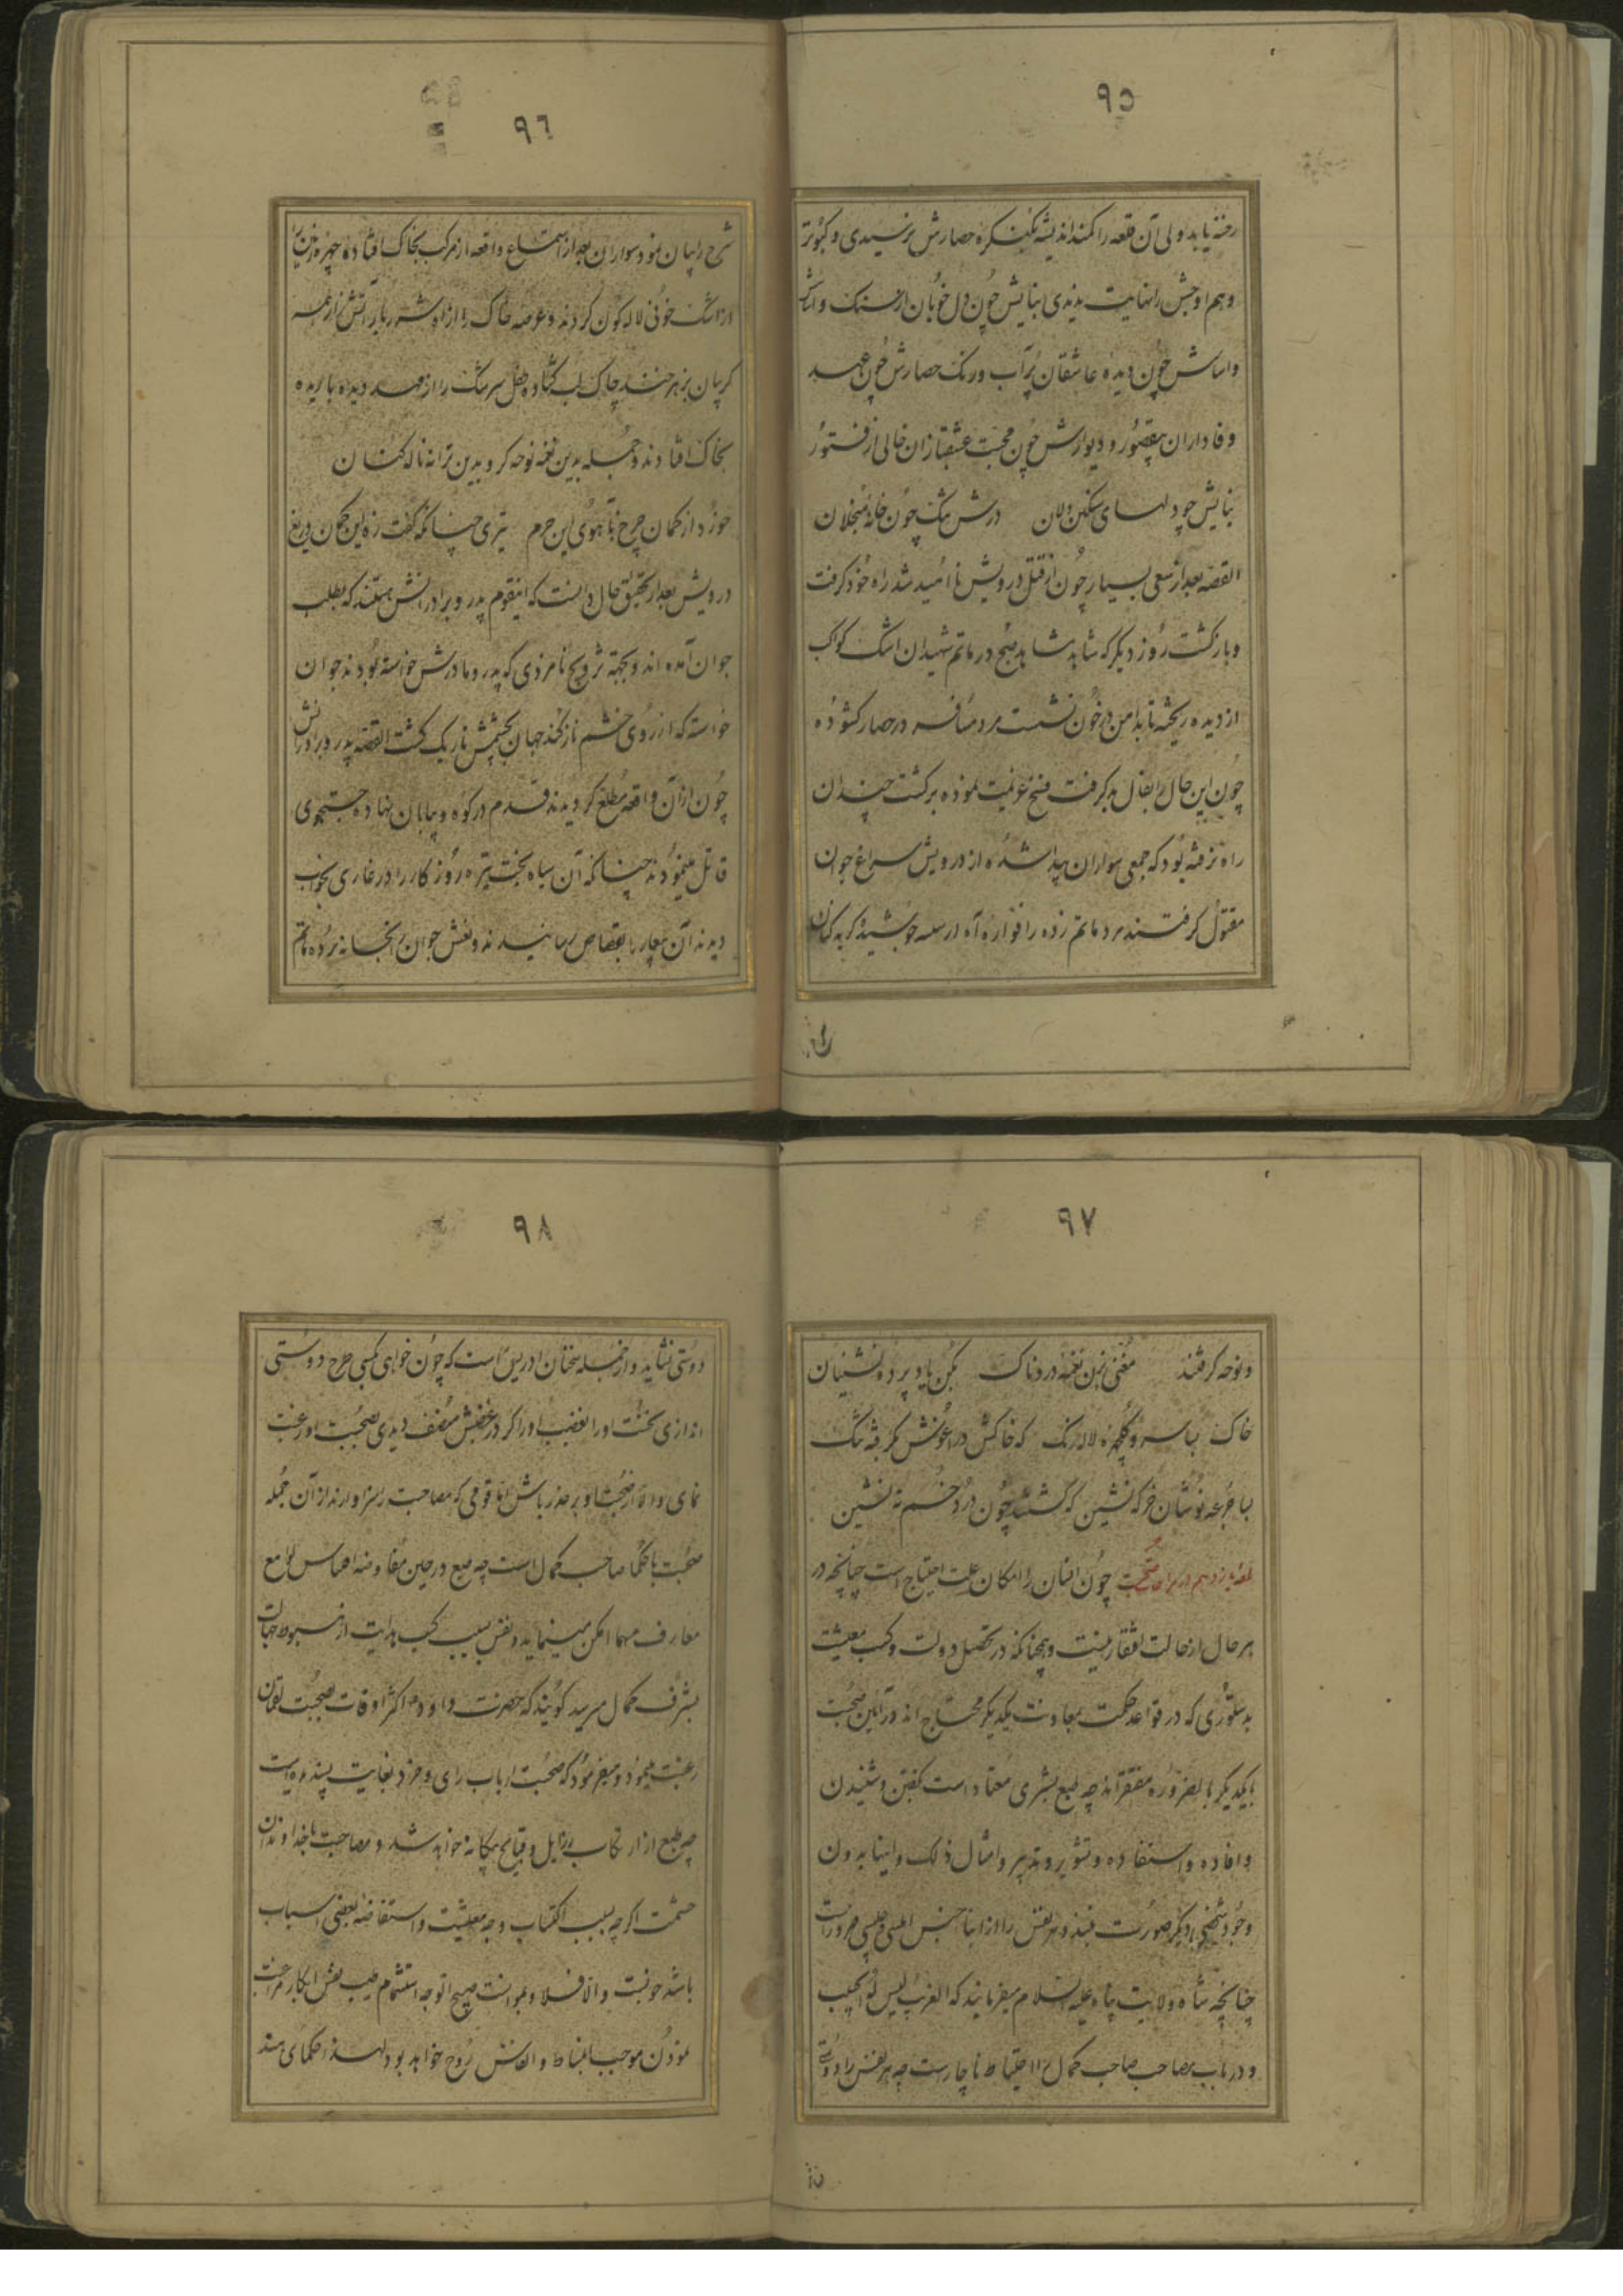 ٩٥
رخنه یابد ولی آن قلعه را کمند اندیشه بکنکره حصارش نرسیدی و کبوتر
وهم اوجش را نهایت ندیدی بنایش چون دل خوبان از سنک
و اساسش چون دیده عاشقان پر آب و رنک حصارش چون عهد
وفاداران بیقصور و دیوارش چون محبت عشقبازان خالی از فتور
بنایش چو دلهای سنکین دلان درش تنک چون خانه مبخلان
القصه بعد از سعی بسیار چون از قتل درویش ناامید شد راه خود کرفت
و بازکشت روز دیکر که شاهد صبح در ماتم شهیدان اشک کواکب
از دیده ریخته تا بدامن در خون نشست مرد مسافر در حصار کشوده
چون این حال را بفال بد کرفت فسخ عزیمت نموده برکشت چندان
راه نرفته بود که جمعی سواران پیدا شده از درویش سراغ جوان
مقتول کرفتند مرد ماتم زده را فواره آه از سینه جوشیده کریه کنان
٩٦
شرح را بیان نمود سواران بعد از استماع واقعه از مرکب بخاک افتاده چهره
از اشک خونی لاله کون کردند و عرصه خاک را از آه شرربار آتش
کریبان بزهرخند چاک لب کشاده طفل سرشک را از مهد دیده بالیده
بخاک افتادند و جمله بدین نغمه نوحه کر و بدین ترانه ناله کنان
خورد از کمان چرخ بآهوی این حرم تیری چنانکه کفت زه این کمان دریغ
درویش بعد از تحقیق حال دانست که اینقوم پدر و برادرانش هستند که بطلب
جوان آمده اند و بجهة تزویج نامزدی که پدر و مادرش خواسته بودند جوان
خواسته که از روی خشم ناز کند جهان بچشمش تاریک کشت القصه پدر و برادرانش
چون از آن واقعه مطلع کردیدند قدم در کوه و بیابان نهاده جستجوی
قاتل مینمودند چنانکه آن سیاه بخت تیره روزکار را در غاری بخواب
دیدند آن نابکار را بقصاص رسانیدند و نعش جوان را بخانه برده ماتم
٩٧
و نوحه کرفتند مغنی بزن نغمه دردناک بکن یاد پرده نشینان
خاک بسا سرو کلچهره لاله رنک که خاکش در آغوش بکرفته تنک
بسا جرعه نوشان خرکه نشین که کشتند چون درد خم ته نشین
صحبت چون انسان را امکان علت احتیاج است چنانچه در
هر حال از حالت افتقار نیست و همچنانکه در تحصیل دولت و کسب معیشت
بدستوری که در قواعد حکمت بمعاونت یکدیکر محتاج اند در آیین صحبت
با یکدیکر بالضروره مفتقراند چه طبع بشری معتاد است بکفتن و شنیدن
و افاده و استفاده و تشویر و تدبیر و امثال ذلک و اینها بدون
وجود شخصی دیکر صورت نبندد هر نفس را از ابنا جنس انیسی و جلیسی ضرور است
چنانچه شاه ولایت پناه علیه السلام میفرمایند که الغریب لیس له الحبیب
و در باب مصاحب صاحب کمال احتیاط ناچارست چه هر نفس را دوستی
٩٨
دوستی نشاید و از جمله سخنان ادریس است که چون خواهی با کسی طرح دوستی
اندازی نخست او را بغضب آور اکر در غضبش منصف دیدی بصحبت او رغبت
نمای و الا از صحبت او بر حذر باش اما قومی که مصاحبت را سزاوارند از آن جمله
صحبت با حکما صاحب کمال است چه طبع در حین مفاوضه اقتباس لوامع
معارف مهما امکن مینماید و نفس بسبب کسب هدایت از هبوط جهالت
بشرف کمال میرسد کویند که حضرت داود اکثر اوقات بصحبت لقمان
رغبت مینمود و میفرمود که صحبت ارباب رای و خرد بغایت پسندیده است
چه طبع از ارتکاب رزایل و قبایح بیکانه خواهد شد و مصاحبت با خداوندان
حشمت اکرچه بسبب اکتساب وجه معیشت و استفاضه بعضی اسباب
باشد خوبست والا فلا
نمودن موجب انبساط و انتعاش روح خواهد بود لهذا حکمای هند